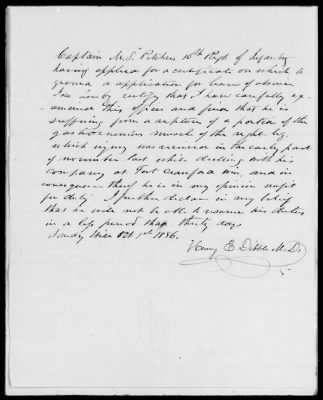 Captain M. S. Pitcher 16th Regt of Infantry
having applied for a certificate on which to
ground a application for leave of absence
I do hereby certify that I have carefully ex-
amined this officer and find that he is
suffering from a rupture of a portion of the
gastrocnemius muscle of the right leg.
which injury was received in the early part
of november last while drilling with his
company at Fort and in
consequence thereof he is in my opinion unfit
for duty. I further declare in my belief
that he will not be able to resume his duties
in a less period than thirty days
Sandy Hill Oct 1st 1886.
Henry E Dibble M.D.